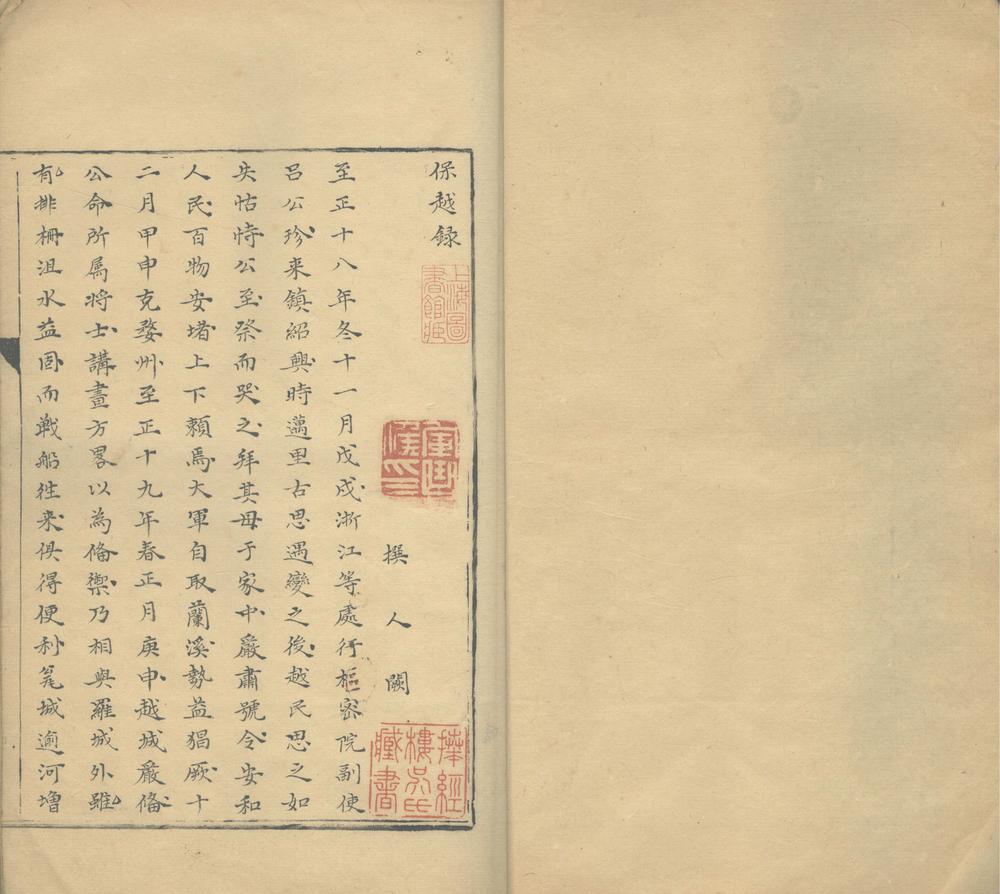 保越録
上海圖書館藏
撰人闕
捧經樓吳氏臧書
至正十八年冬十一月戊戌浙江等處行樞密院副使
吕公珍来鎮紹興時邁里古思遇變之後越民思之如
失怙恃公至祭而哭之拜其母于家中嚴肅號令安和
人民百物安堵上下頼焉大軍自取蘭溪勢益猖厥十
二月甲申克婺州至正十九年春正月庚申越城嚴俻
公命所属将士講畫方畧以為俻禦乃相與羅城外雖
有排柵沮水益固而戰船徃来俱得便利瓮城逾河增